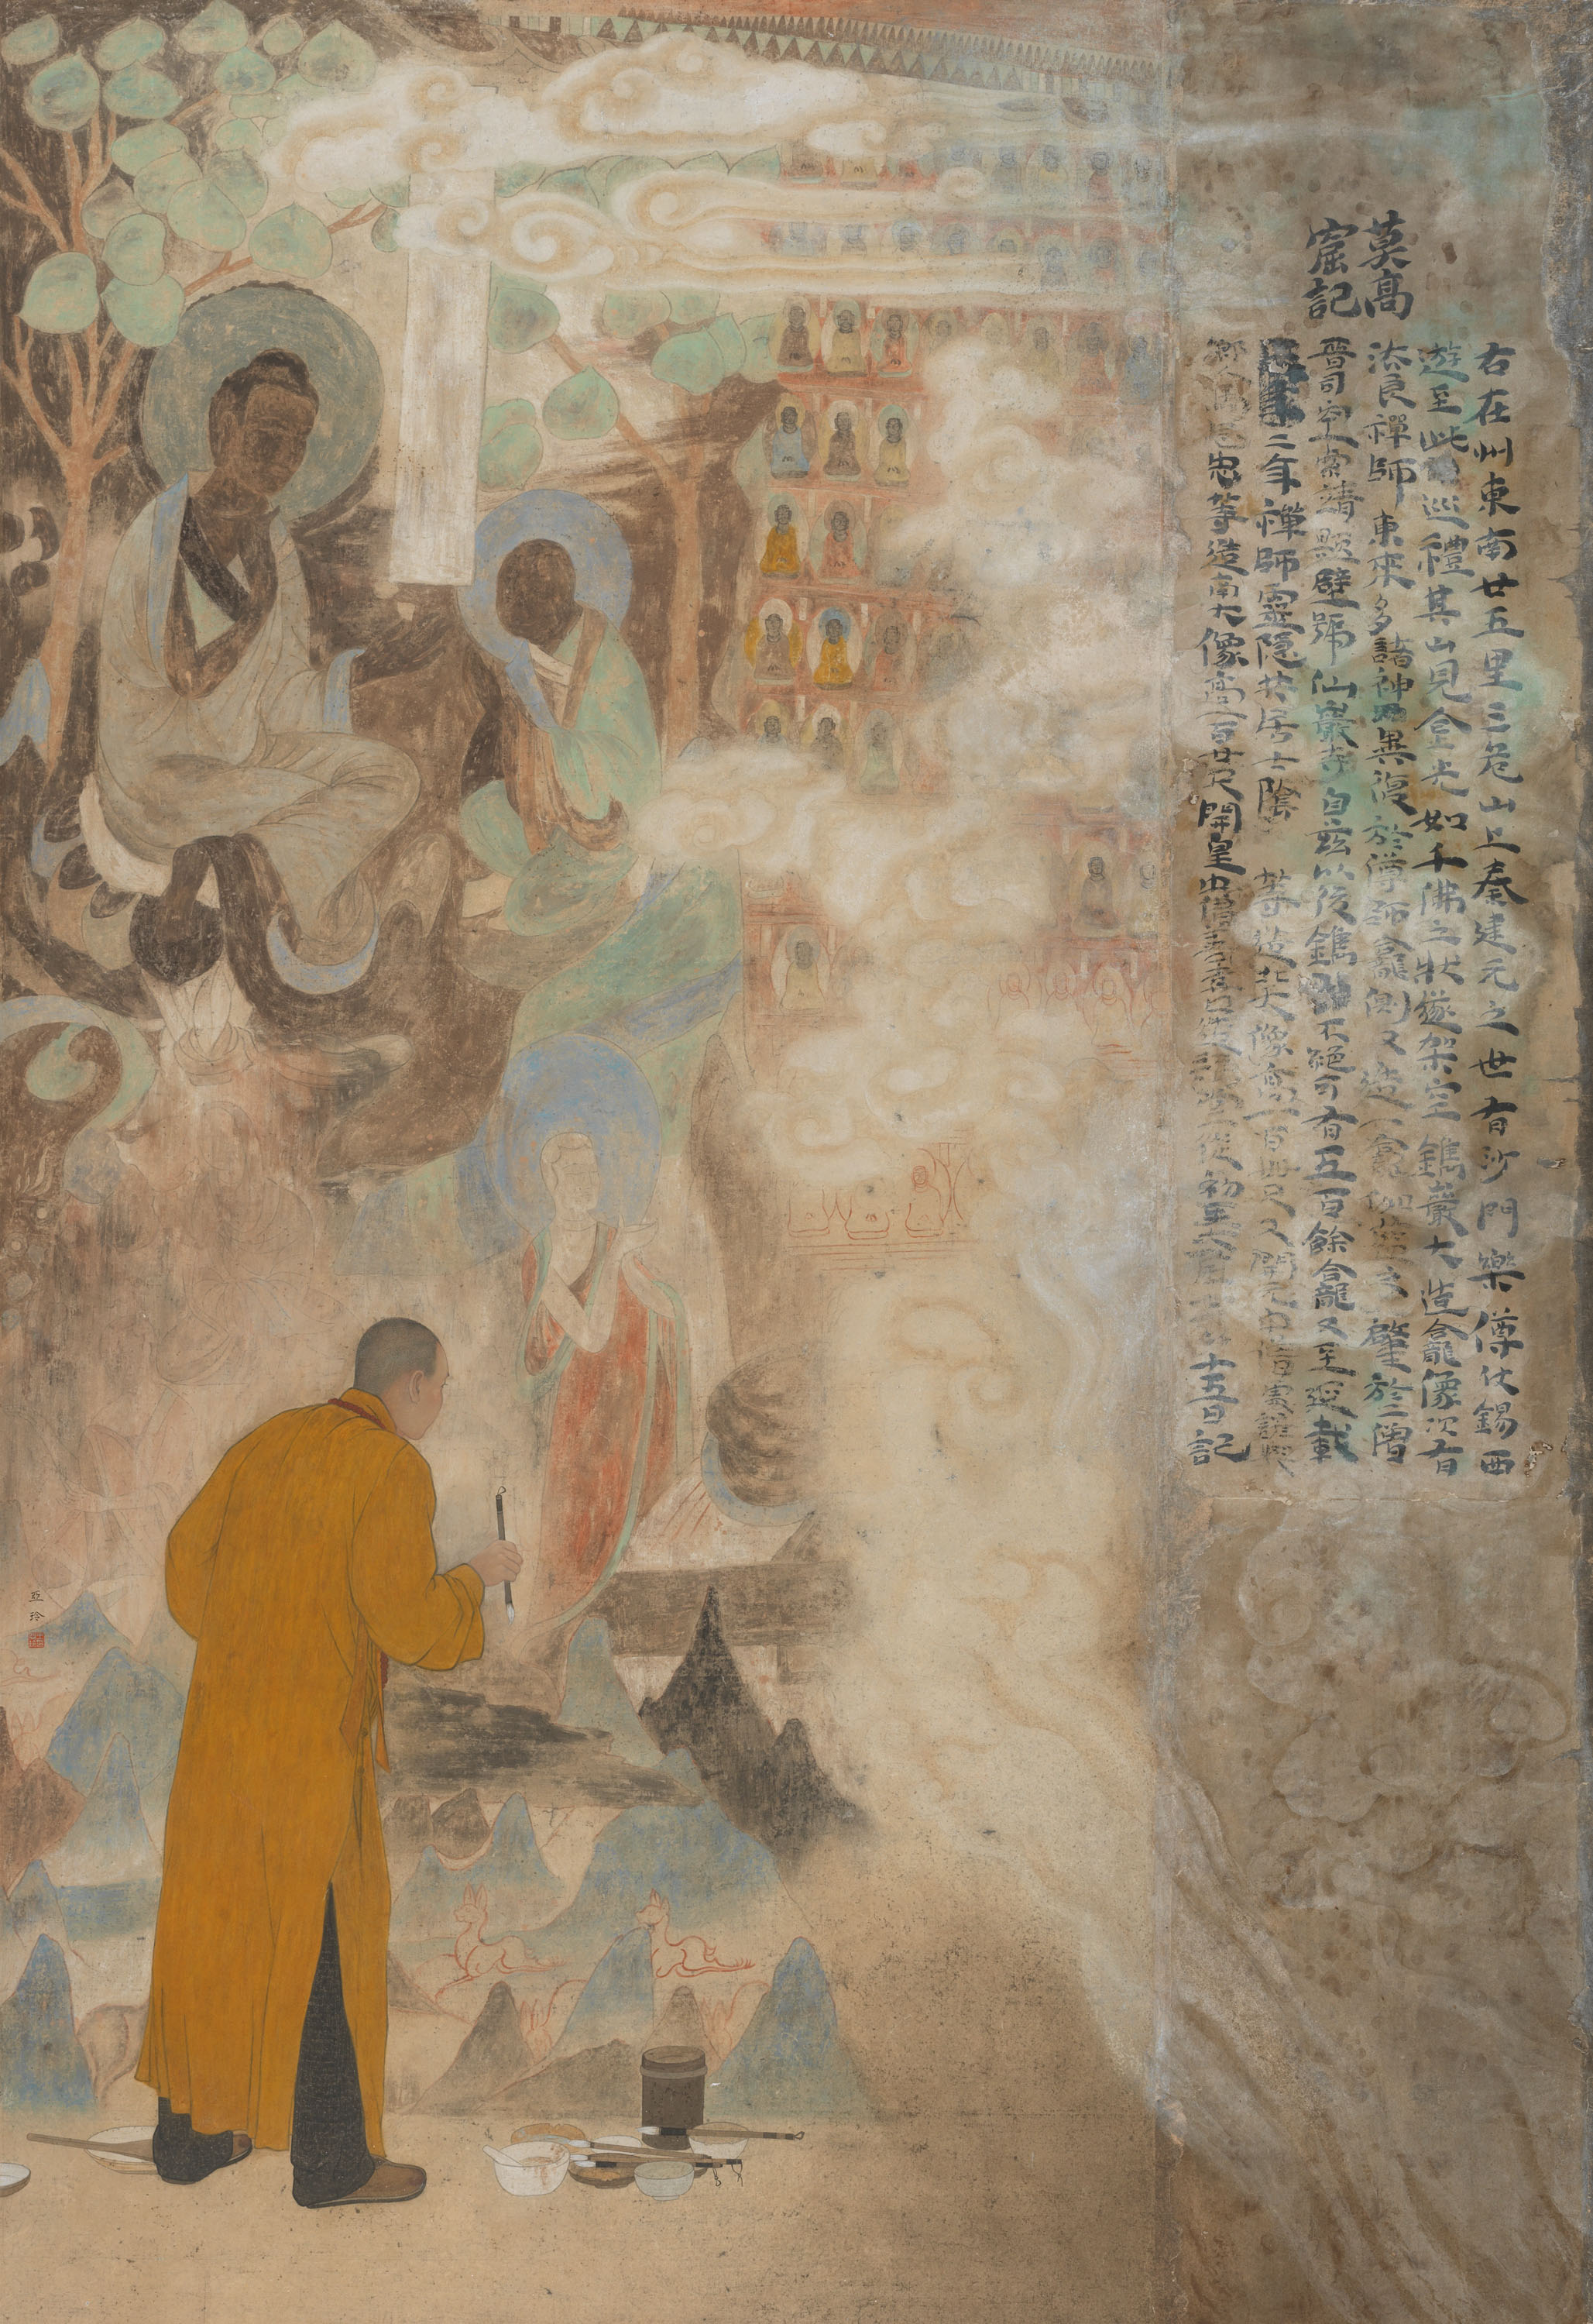 莫高
窟記
右在州東南廿五里三危山上秦建元之世有沙門樂僔仗錫西
遊至此巡禮其山見金光如千佛之狀遂架空鐫巖大造龕像次有
法良禪師東來多諸神異復於僔師龕側又造一龕伽藍之肇於二僧
晉司空索靖題壁號仙巖寺自茲以後鐫不絕可有五百餘龕又至延載
二年禪師靈隱共居士陰等造北大像高一百卌尺又開元中僧處諺與
鄉忠等造南大像高一百廿尺開皇中僧善喜造從初至大十五日記
亞玲